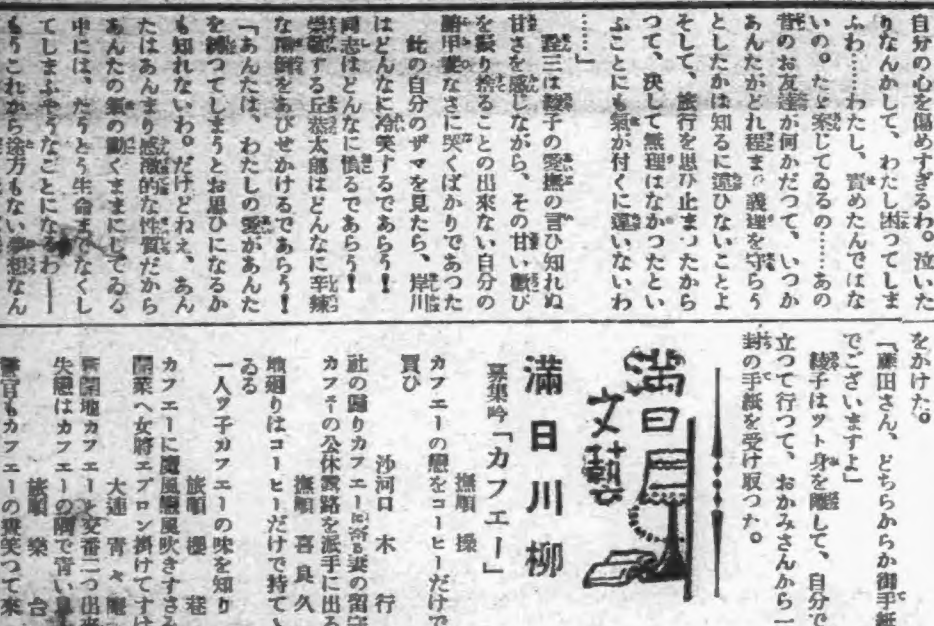 自分の心を傷めすぎるわ。泣いた
りなんかして、わたし困つてしま
ふわ……わたし、責めたんではな
いの。たゞ案じてゐるの……あの
昔のお友達が何かだつて、いつか
あんたがどれ程まで義理を守らう
としたかは知るに違ひないことよ
そして、旅行を思ひ止まつたから
つて、決して無理はなかつたとい
ふことにも氣が付くに違いないわ
……」
三は綾子の愛撫の言ひ知れぬ
甘さを感じながら、その甘い歡び
を振り捨ることの出來ない自分の
腑甲斐なさに哭くばかりであつた
此の自分のザマを見たら、岸川
はどんなに冷笑するであらう！
同志はどんなに憤るであらう！
崇敬する丘恭太郎はどんなに辛辣
な罵倒をあびせかけるであらう！
「あんたは、わたしの愛があんた
を縛つてしまうとお思ひになるか
も知れないわ。だけどねえ、あん
たはあんまり感激的な性質だから
あんたの氣の動くままにしてゐる
中には、たうとう生命までなくし
てしまふやうなことになるわ――
もうこれから途方もない夢想なん
をかけた。
「藤田さん、どちらからか御手紙
でございますよ」
綾子はツト身を離して、自分で
立つて行つて、おかみさんから一
封の手紙を受け取つた。
滿日文藝
滿日川柳
募集吟「カフエー」
撫順 操
カフエーの戀をコーヒーだけで
買ひ
沙河口 木 行
社の歸りカフエーに寄る妻の留守
カフエーの公休電路を派手に出る
撫順 喜良久
地廻りはコーヒーだけで持て
ゐる
一人ツ子カフエーの味を知り
旅順 櫻 巷
カフエーに魔風戀風吹きすさみ
開業へ女將エプロン掛けてすけ
大連 青々
新開地カフエーと交番二つ出來
失戀はカフエーの隅で青い
旅順 樂 台
警官もカフエーの 笑つて來